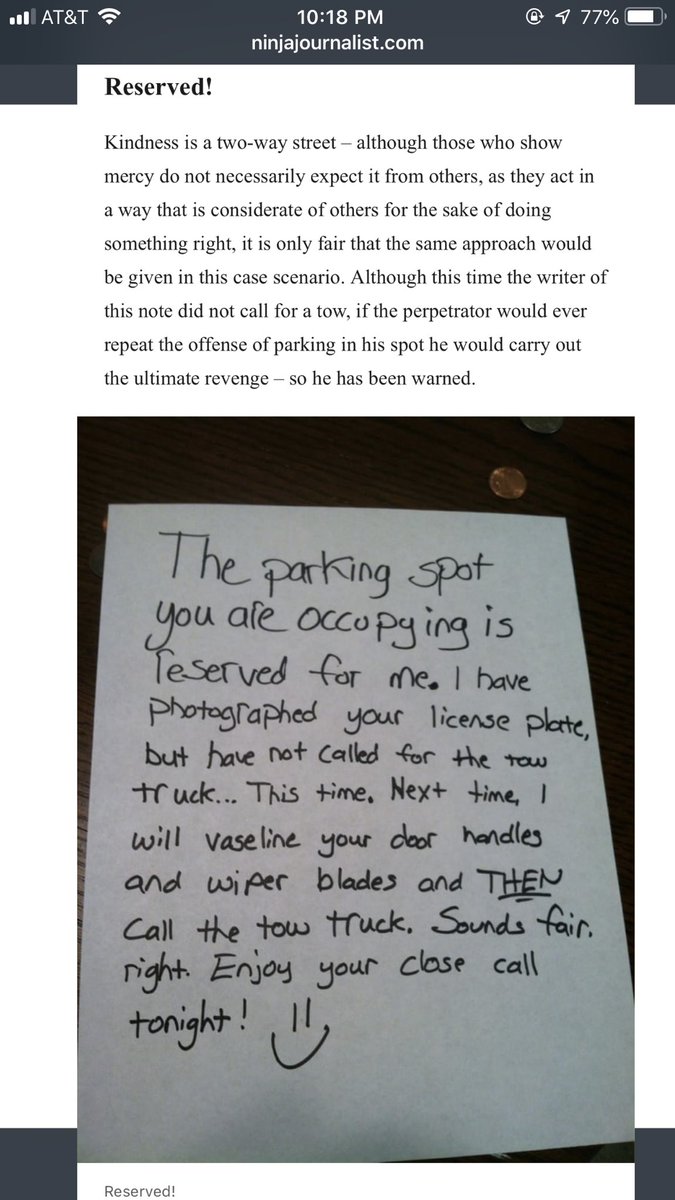 AT&T 10:18 PM 77%
ninjajournalist.com
Reserved!
Kindness is a two-way street – although those who show
mercy do not necessarily expect it from others, as they act in
a way that is considerate of others for the sake of doing
something right, it is only fair that the same approach would
be given in this case scenario. Although this time the writer of
this note did not call for a tow, if the perpetrator would ever
repeat the offense of parking in his spot he would carry out
the ultimate revenge – so he has been warned.
The parking spot
you are occupying is
reserved for me. I have
photographed your license plate,
but have not called for the tow
truck... This time. Next time, I
will vaseline your door handles
and wiper blades and THEN
call the tow truck. Sounds fair,
right. Enjoy your close call
tonight!
Reserved!